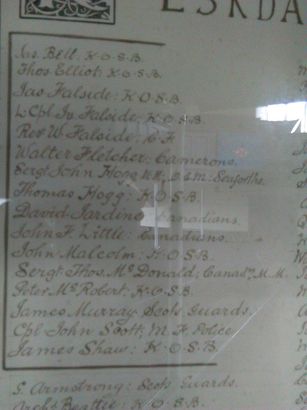 ESKDA
Jas. Bell: K.O.S.B.
Thos Elliot: K.O.S.B.
Jas Falside: K.O.S.B.
L Cpl Js. Falside: K.O.S.B.
Rev W. Falside: C.F.
Walter Fletcher: Camerons.
Sergt John Hogg M.M., Seaforths.
Thomas Hogg: K.O.S.B.
David Jardine, Canadians.
John F. Little: Canadians.
John Malcolm: K.O.S.B.
Sergt Thos. McDonald, Canadns, M.M.
Peter McRobert, K.O.S.B.
James Murray, Scots Guards.
Cpl John Scott, M. F. Police
James Shaw: K.O.S.B.
G. Armstrong: Scots Guards.
Archd Beattie: K.O.S.B.